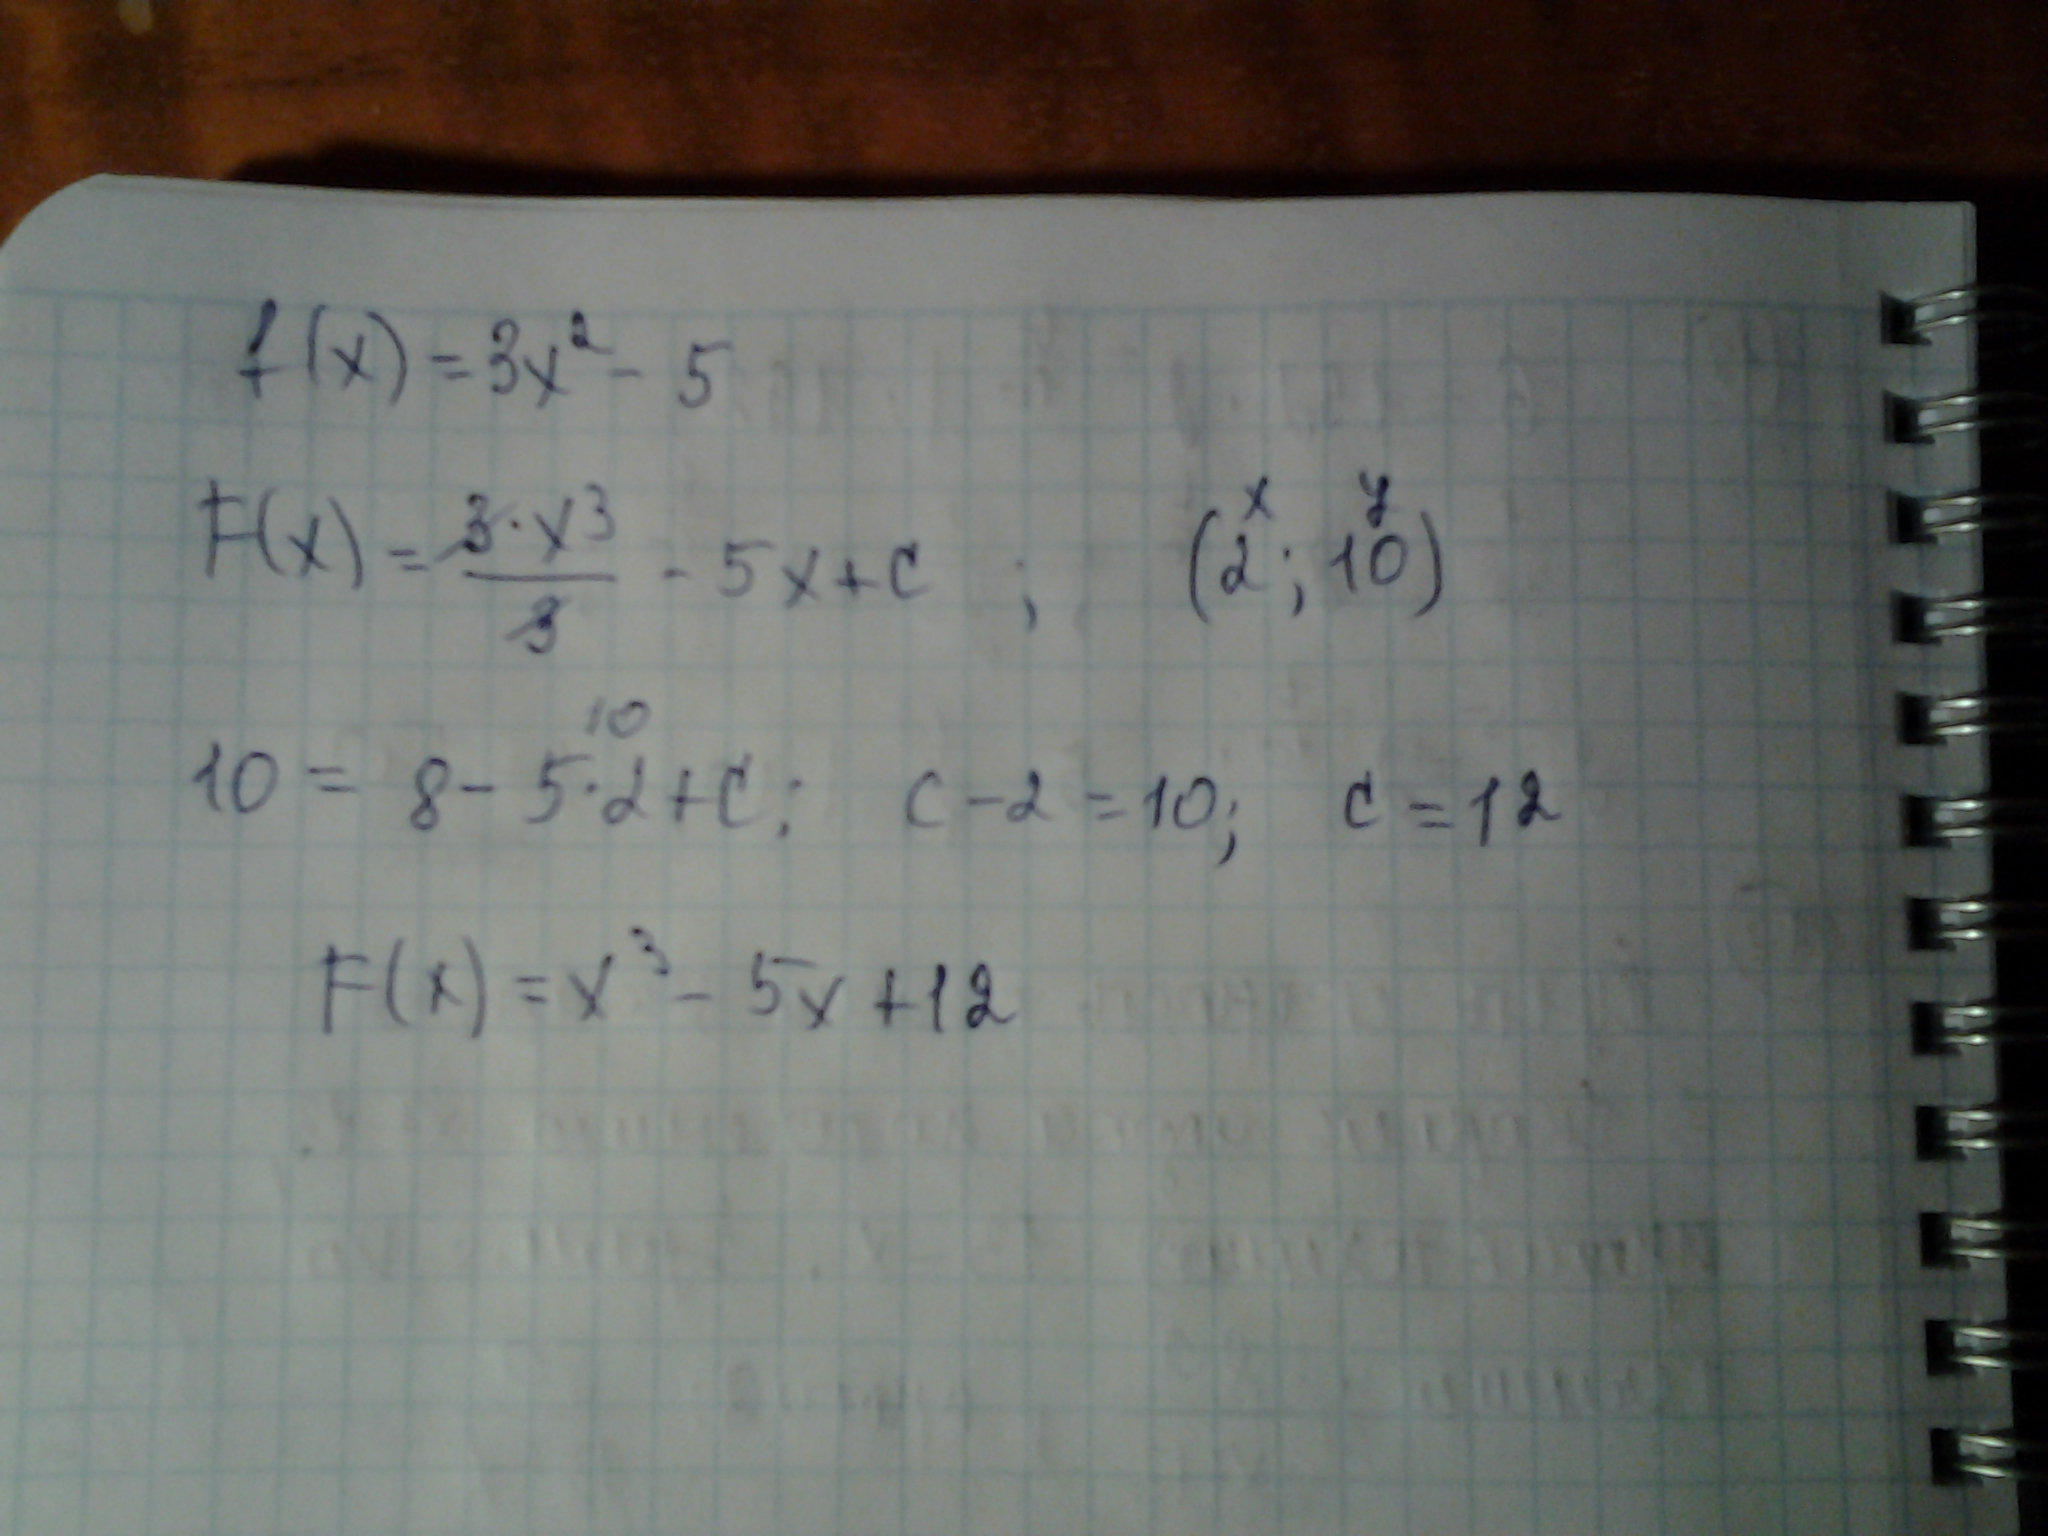 f(x) = 3x² - 5
F(x) = 3·x3/3 - 5x + c ; (2; 10)
x y
10
10 = 8 - 5·2 + c; c - 2 = 10; c = 12
F(x) = x³ - 5x + 12